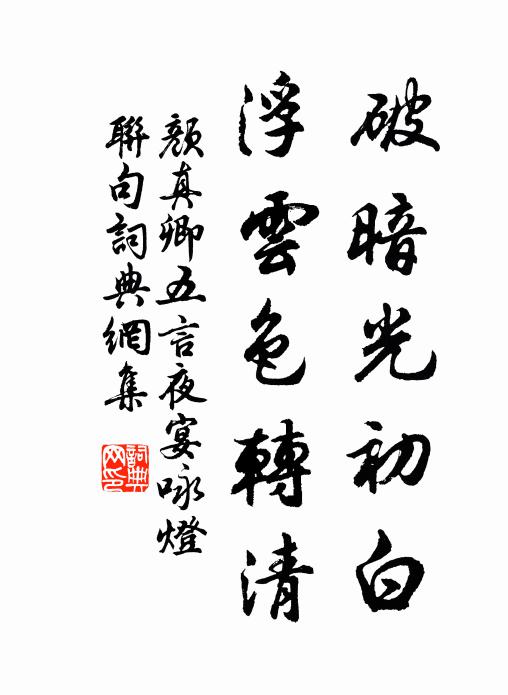 破暗光初白
浮雲色轉清
顏真卿五言夜宴咏燈
聯句詞典網集
詞典
网印